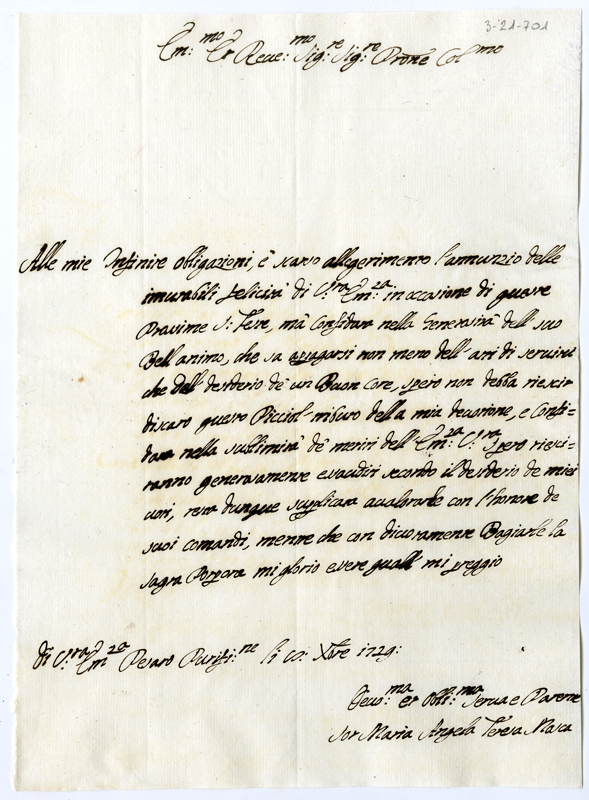 3-21-701
Em:mo et Reue:mo Sig:re Sig:re Prone Col:mo
Alle mie Infinite obligazioni, è scarso allegerimento l'annunzio delle
imutabili felicità di V:ra Em:za in occasione di queste
Prosime S: Feste, mà Confidata nella Generosità dell suo
Bell'animo, che sa apagarsi non meno dell'atti di seruitù
che dell desiderio dè un Buon Core, spero non debba riescir
discaro questo Picciol tributo della mia deuotione, e Confi-
data nella sublimità dè meriti dell'Em:za V:ra spero riesci-
ranno generosamente esauditi secondo il desiderio de miei
uoti, resta dunque suplicata aualorarle con l'honore de
suoi comandi, mentre che con diuotamente Bagiarle la
sagra Porpora mi glorio essere quall mi preggio
di V:ra Em:za Pesaro Purifi:ne li Xbre 1729:
Deuo:ma et Obli:ma Serua e Parente
Sor Maria Angela Teresa Mosca